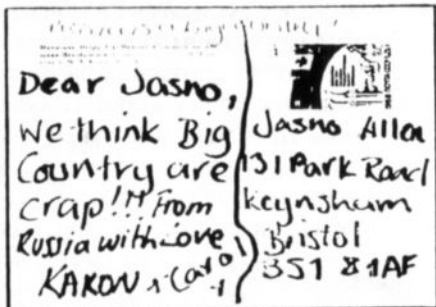 Dear Jasno,
We think Big
Country are
crap!!! From
Russia with Love
KARON + Carol
Jasno Allen
131 Park Road
Keynsham
Bristol
BS1 81AF